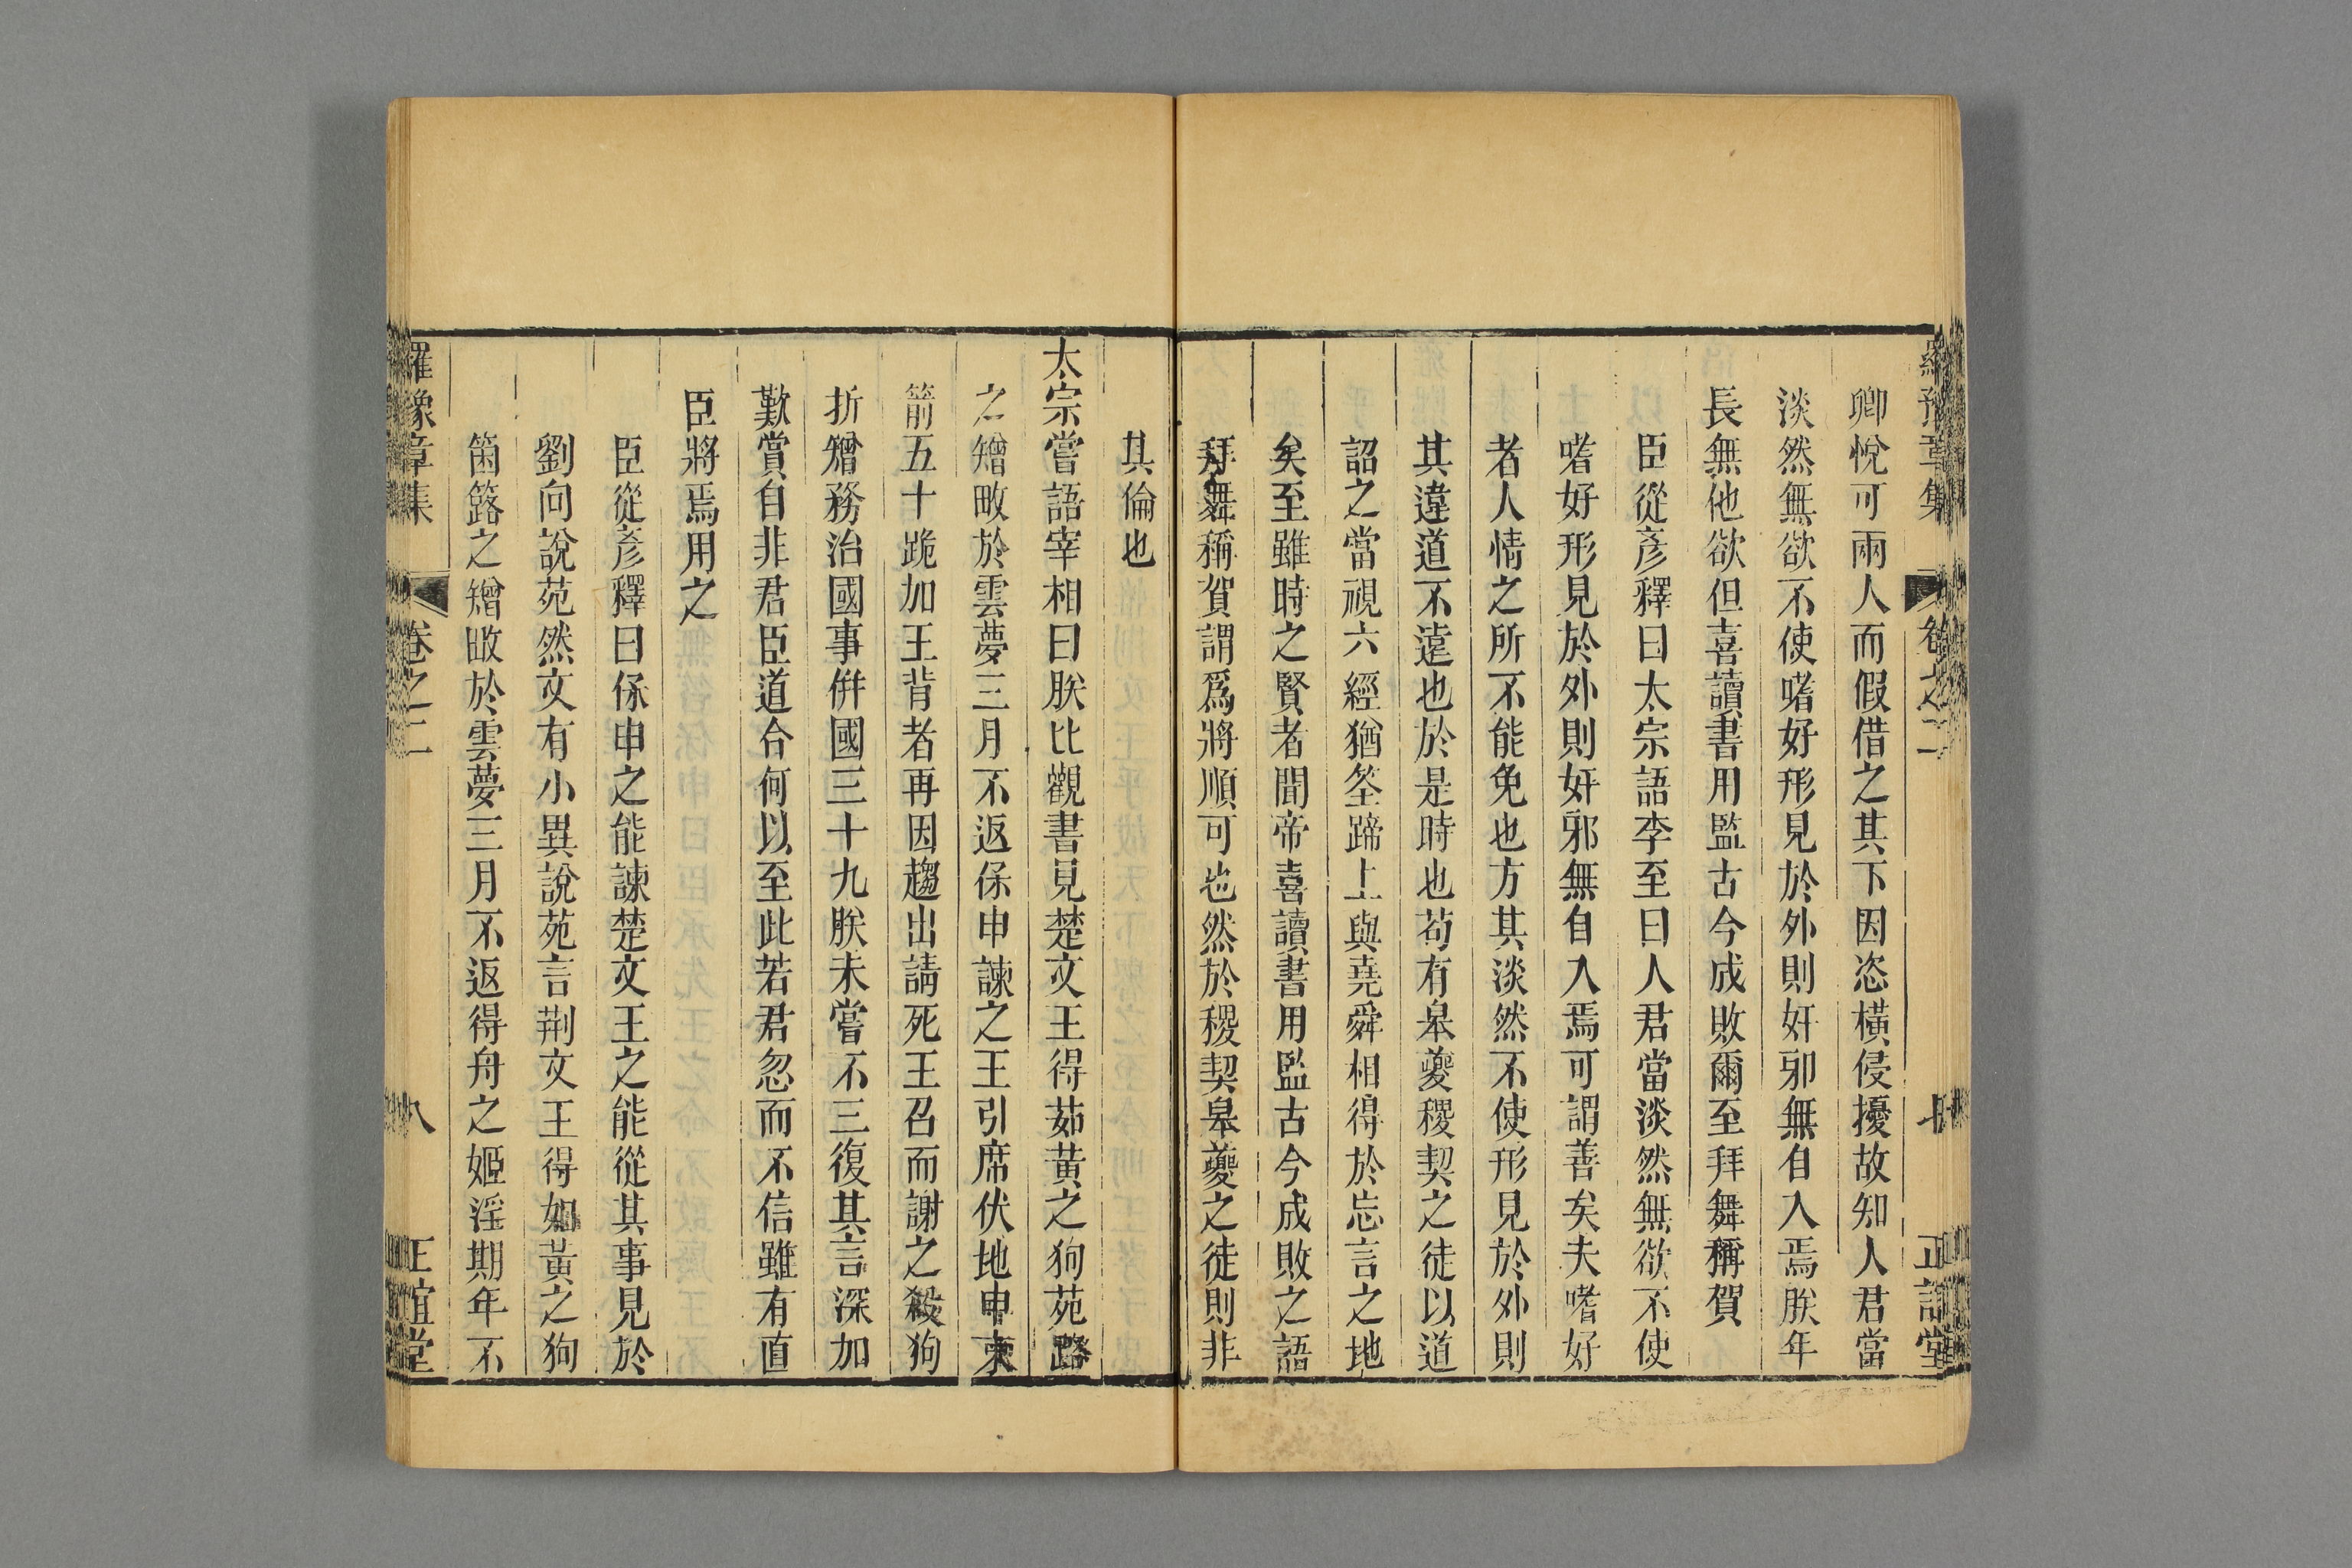 羅豫章集 卷之二 七 正誼堂
卿悅可兩人而假借之其下因恣橫侵擾故知人君當
淡然無欲不使嗜好形見於外則奸邪無自入焉朕年
長無他欲但喜讀書用監古今成敗爾至拜舞稱賀
臣從彥釋曰太宗語李至曰人君當淡然無欲不使
嗜好形見於外則奸邪無自入焉可謂善矣夫嗜好
者人情之所不能免也方其淡然不使形見於外則
其違道不遠也於是時也苟有皋夔稷契之徒以道
詔之當視六經猶筌蹄上與堯舜相得於忘言之地
矣至雖時之賢者聞帝喜讀書用監古今成敗之語
拜舞稱賀謂爲將順可也然於稷契皋夔之徒則非
其倫也
太宗嘗語宰相曰朕比觀書見楚文王得茹黃之狗苑路
之矰畋於雲夢三月不返保申諫之王引席伏地申束
箭五十跪加王背者再因趨出請死王召而謝之殺狗
折矰務治國事併國三十九朕未嘗不三復其言深加
歎賞自非君臣道合何以至此若君忽而不信雖有直
臣將焉用之
臣從彥釋曰保申之能諫楚文王之能從其事見於
劉向說苑然文有小異說苑言荆文王得如黃之狗
箘簬之矰畋於雲夢三月不返得舟之姬淫期年不
羅豫章集 卷之二 八 正誼堂